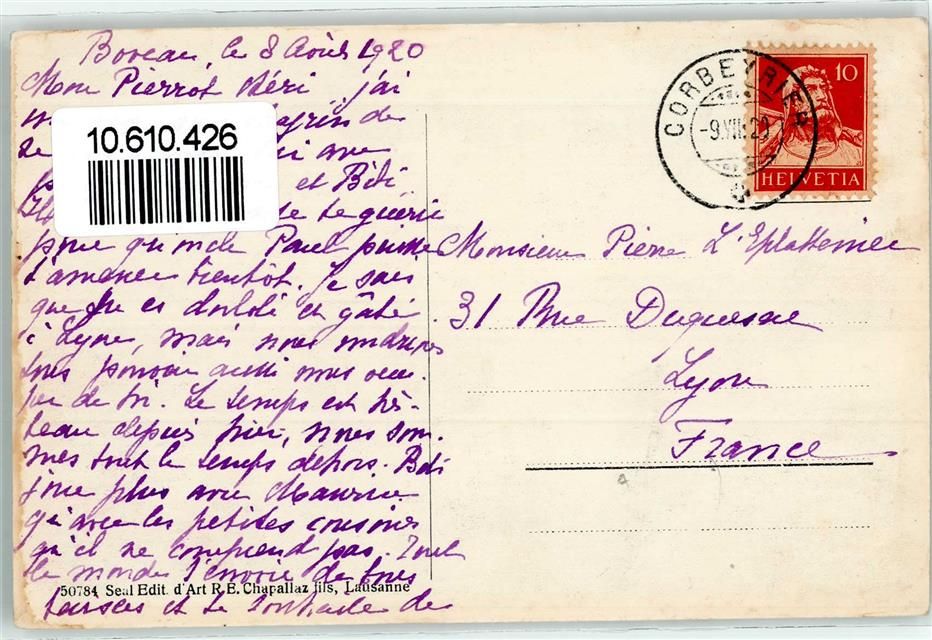 le 8 Août 1920
Mon Pierrot chéri j'ai
10.610.426
de
avec
et Bédi
te guérir
pour qu'oncle Paul puisse
t'amener bientôt. Je sais
que tu es dorloté et gâté
à Lyon, mais nous voudrions
tous pouvoir aussi nous occu-
per de toi. Le temps est très-
beau depuis hier, nous som-
mes tout le temps dehors. Bédi
joue plus avec Maurice
qu'avec les petites cousines
qu'il ne comprend pas. Tout
le monde t'envoie de bons
baisers et te souhaite de
50784 Seul Edit. d'Art R. E. Chapallaz fils, Lausanne
CORBEYRIER
-9.VIII.20
10
HELVETIA
Monsieur Pierre L'Eplattenier
31 Rue Duquesne
Lyon
France